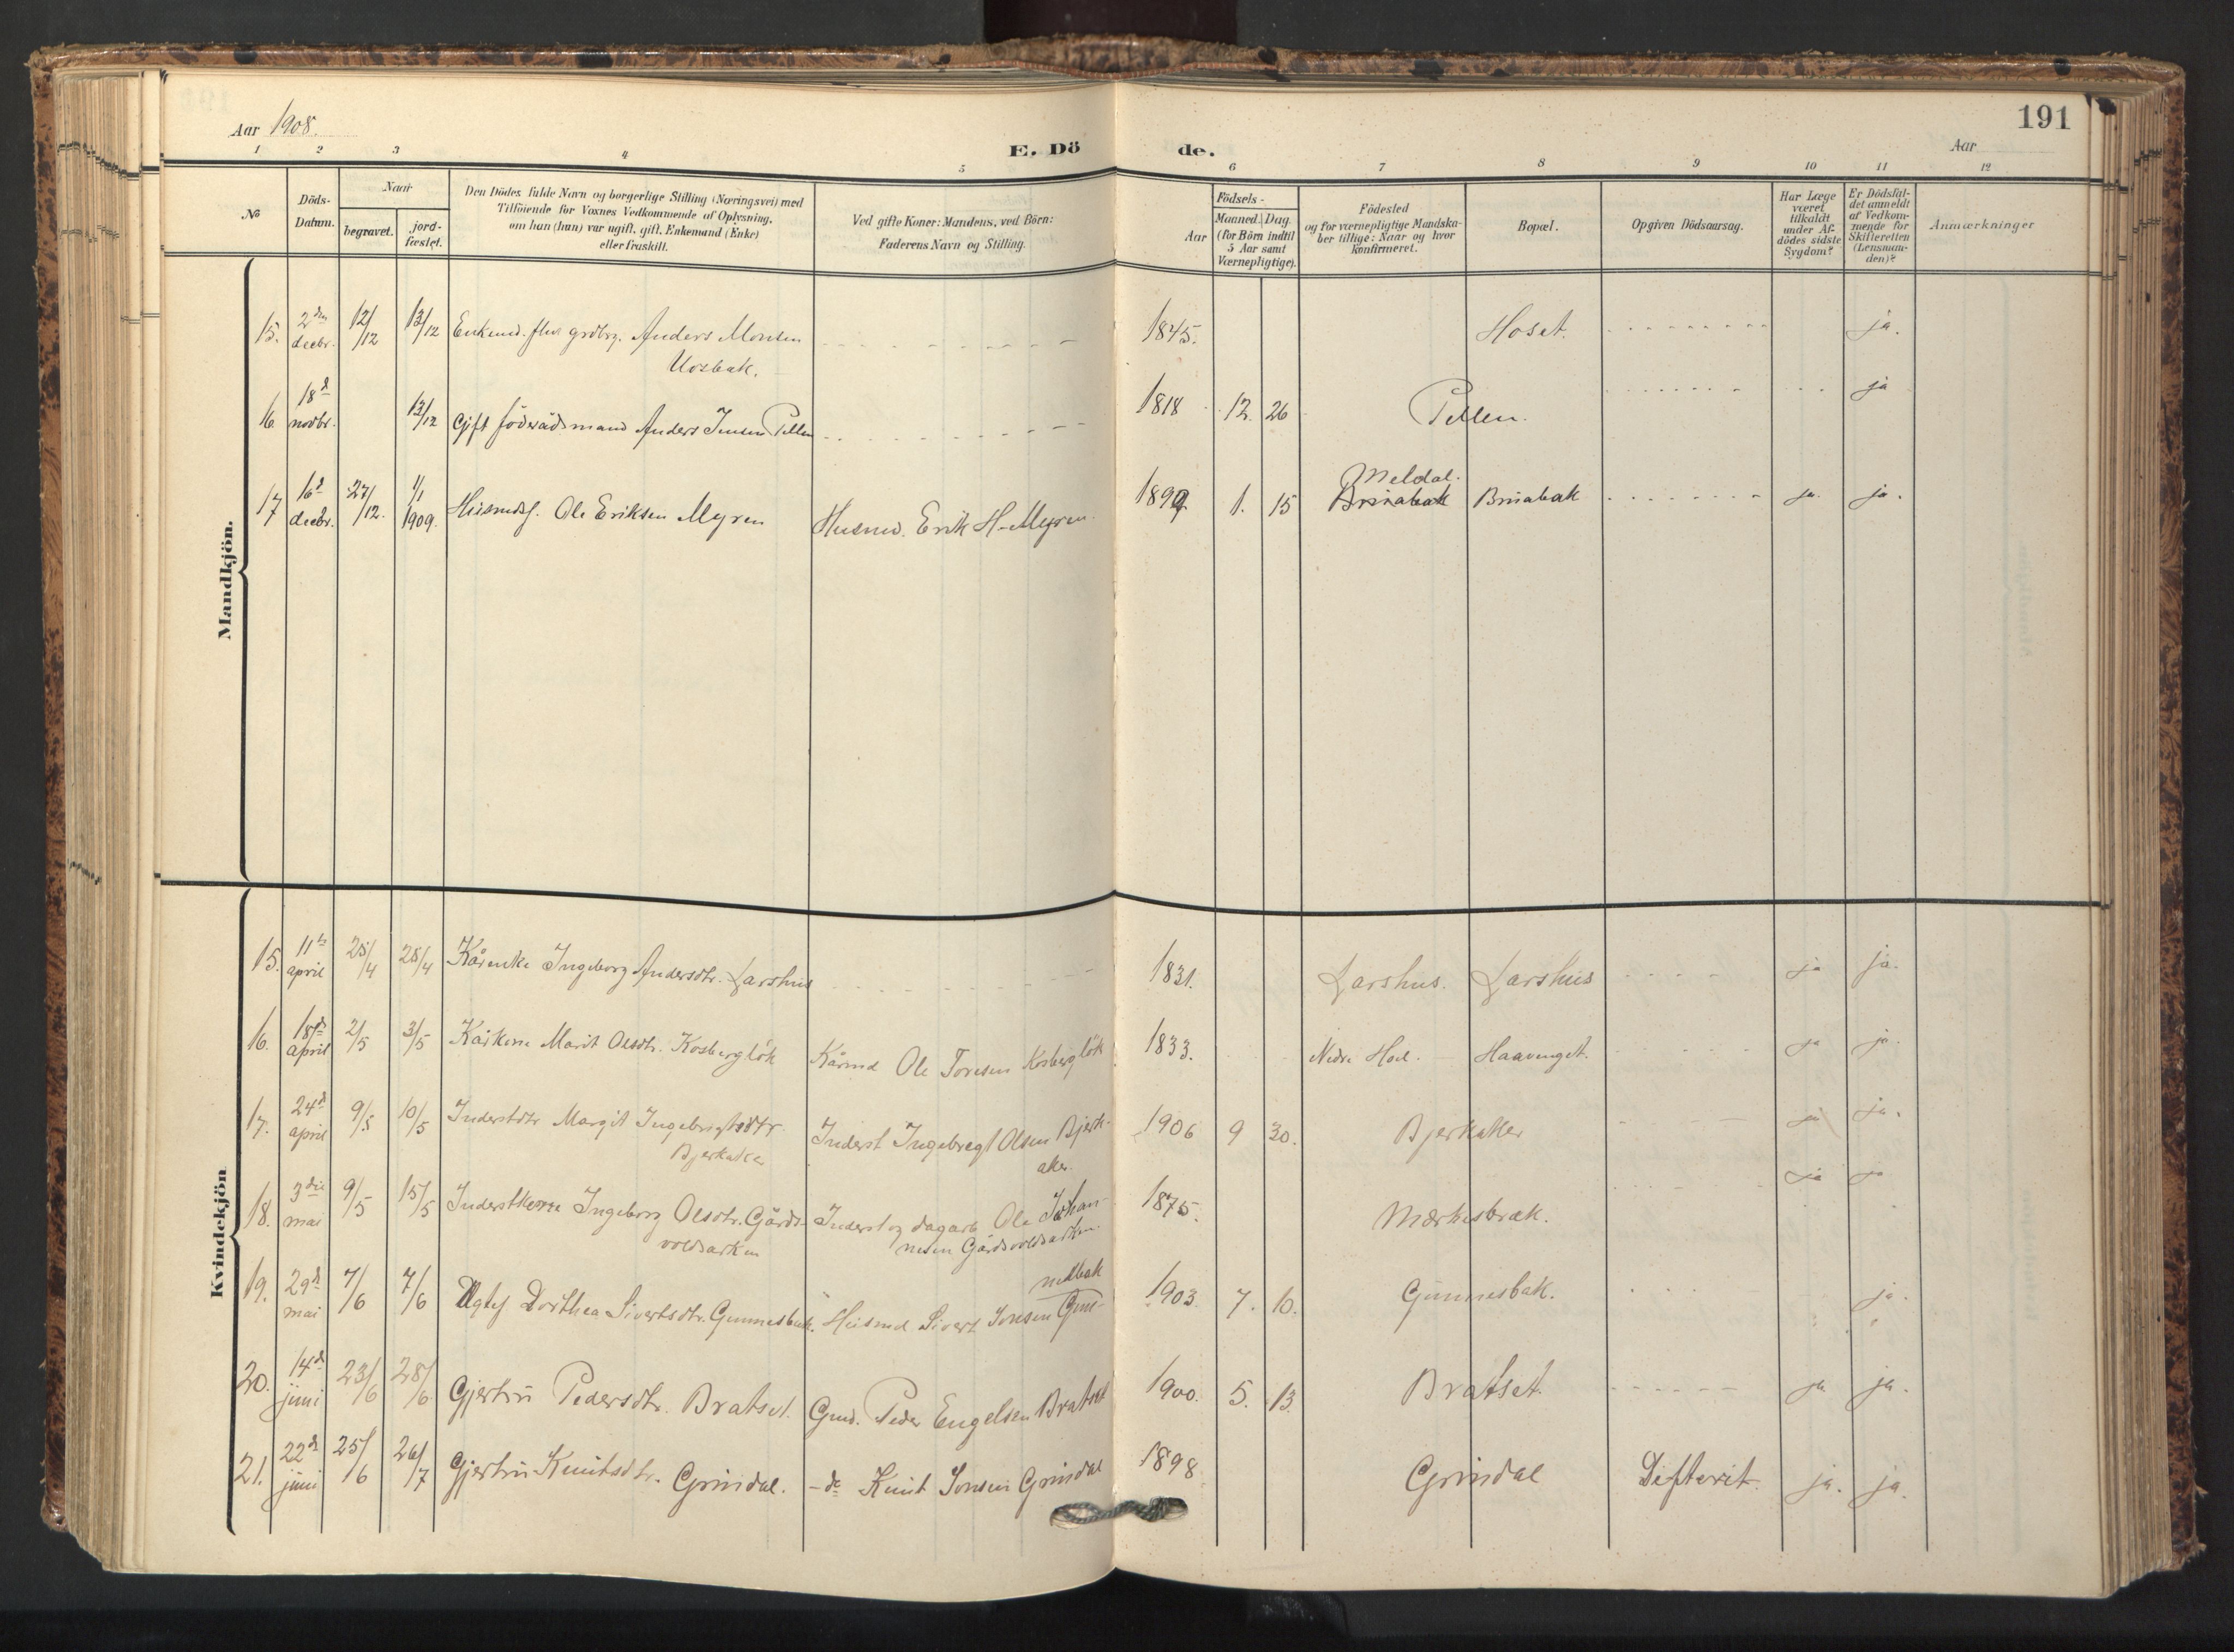 191
Aar 1908.
E. Dö de.
Aar
1 2 3 4 5 6 7 8 9 10 11 12
No
Döds-Datum.
Naar
begravet.
jord-fæstet.
Den Dödes fulde Navn og borgerlige Stilling (Næringsvei) med
Tilföiende for Voxnes Vedkommende af Oplysning,
om han (hun) var ugift, gift, Enkemand (Enke)
eller fraskilt.
Ved gifte Koner: Mandens, ved Börn:
Faderens Navn og Stilling.
Födsels-
Aar
Maaned. Dag.
(for Börn indtil
5 Aar samt
Værnepligtige).
Födested
og for værnepligtige Mandska-
ber tillige: Naar og hvor
konfirmeret.
Bopæl.
Opgiven Dödsaarsag.
Har Læge
været
tilkaldt
under Af-
dödes sidste
Sygdom?
Er Dödsfal-
det anmeldt
af Vedkom-
mende for
Skifteretten
(Lensman-
den)?
Anmærkninger
Mandkjön.
15. 2den decbr. 12/12 13/12 Enkemd. grdbrg. Anders Monsen 1845. Hoset. ja.
16. 18d novbr. 13/12 Gift föderådsmand Anders Jensen Pellen 1818 12. 26 Pellen. ja
Meldal.
17 16d decbr. 27/12. 1/1 1909. Husmds. Ole Eriksen Myren Husmd. Erik H. Myren. 1899 1. 15 Brinabak Brinabak ja. ja.
Kvindekjön
15. 11te april 25/4 28/4 Kårenke Ingeborg Andersdtr. Larshus 1831. Larshus. Larshus ja ja.
16. 18d april 2/5 3/5 Kårkone Marit Olsdtr. Kosbergløk Kårmd Ole Toresen Kosbergløk 1833. Nedre Hoel. Haavenget. ja ja.
17. 24d april 9/5 10/5 Inderstdtr Margit Ingebrigtsdtr. Inderst Ingebregt Olsen Bjerk- 1906 9 30. Bjerkaker ja ja.
Bjerkaker aker.
18. 3die mai 9/5 15/5 Inderstkone Ingeborg Olsdtr. Gårds- Inderst og dagarb. Ole Johan- 1875. Mærkesbræk. ja ja
voldsarken nesen Gårdsvoldsarken.
nesbak
19. 29d mai 7/6 7/6 Dorthea Sivertsdtr. Gunnesbak. Husmd Sivert Jonsen Gun- 1903. 7. 10. Gunnesbak. ja.
20. 14d juni 23/6 28/6 Gjertru Pedersdtr. Bratset. Gmd. Peder Engelsen Bratset 1900. 5. 13. Bratset. ja ja.
21. 22d juni 25/6 26/7 Gjertru Knutsdtr. Grindal. - do Knut Jonsen Grindal 1898 Grindal Difterit. ja. ja.